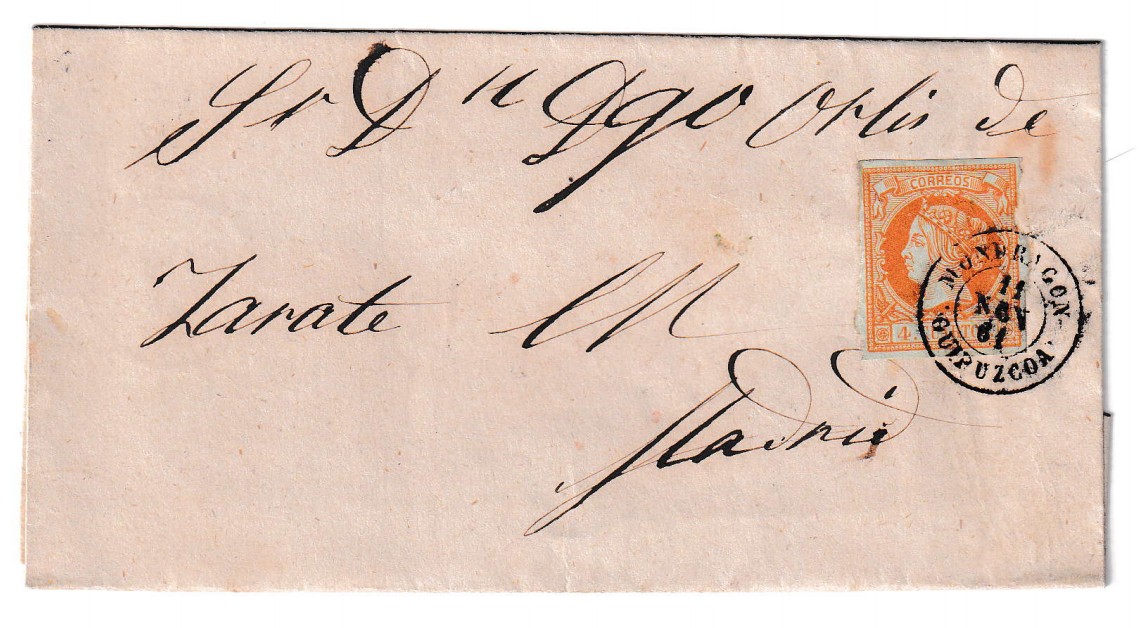 Sr Dn Dgo Ortis de
CORREOS
Zarate
4 CTOS
MONDRAGON
11
NOV
61
GUIPUZCOA
Madrid